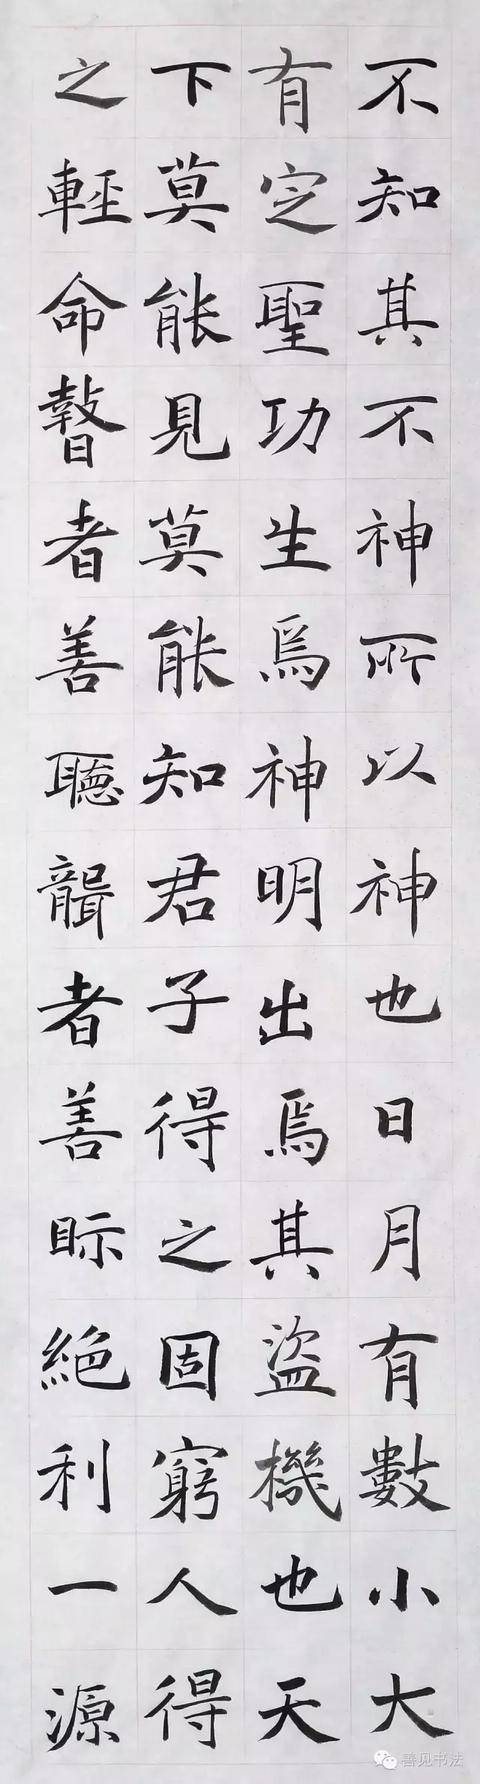 不知其不神所以神也日月有數小大
有定聖功生焉神明出焉其盜機也天
下莫能見莫能知君子得之固窮人得
之輕命瞽者善聽聾者善眎絕利一源
善见书法